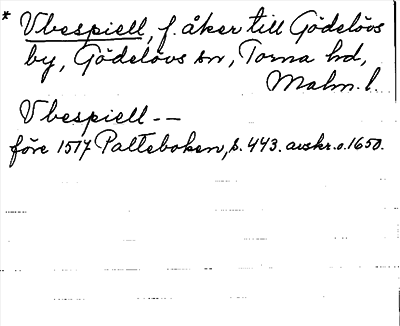 * Vbespiell, f. åker till Gödelövs
by, Gödelövs sn, Torna hd,
Malm. l.
Vbespiell --
före 1517 Palteboken, s. 443. avskr. o. 1650.